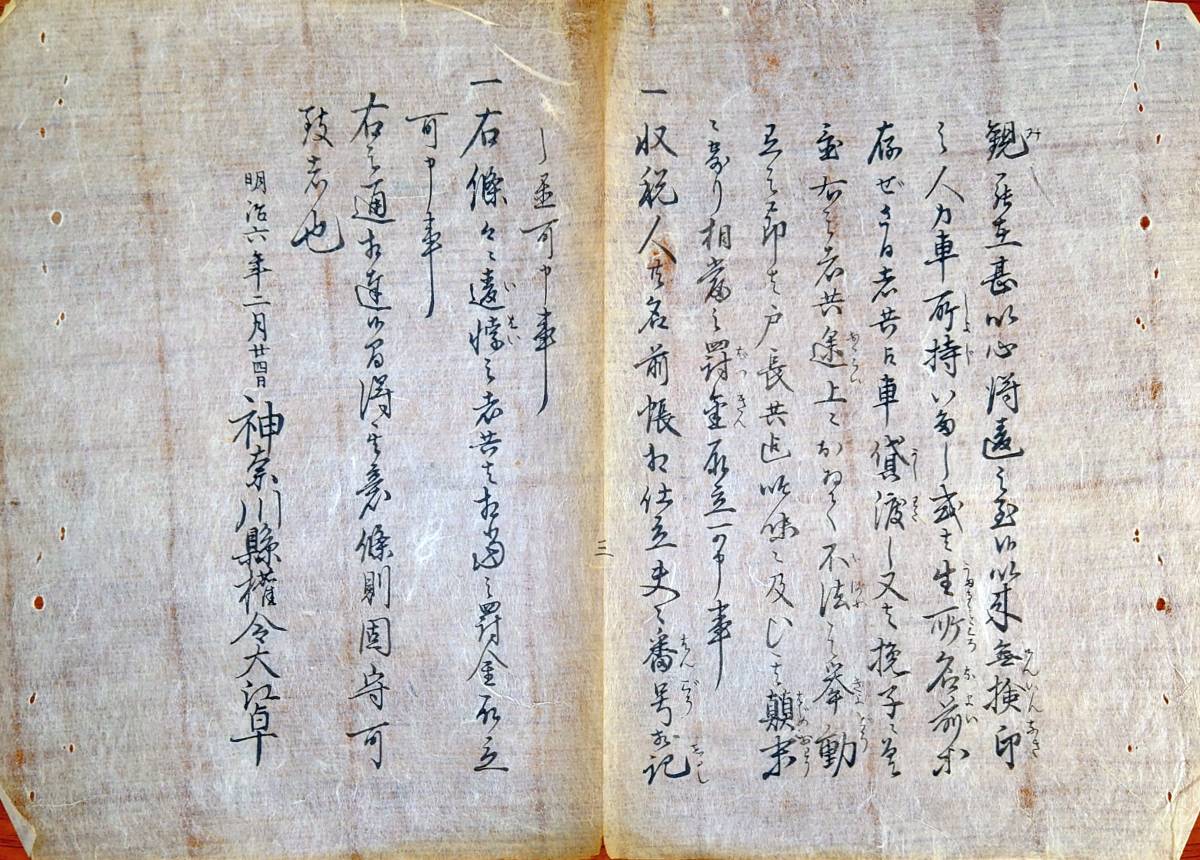 観候在甚以心得違之至候以来無検印
之人力車所持いたし或は生所名前等
存ぜざる者共江車貸渡し又は挽子差
置右之者共途上におゐて不法之挙動
有之節は戸長共迄吟味に及び其顛末
に寄り相当之罰金取立可申事
一収税人共名前帳相仕立夫々番号相記
し置可申事
一右條々違悖之者共は相当之罰金取立
可申事
右之通相達候間得其意條則固守可
致者也
明治六年二月廿四日 神奈川縣權令大江卓
三